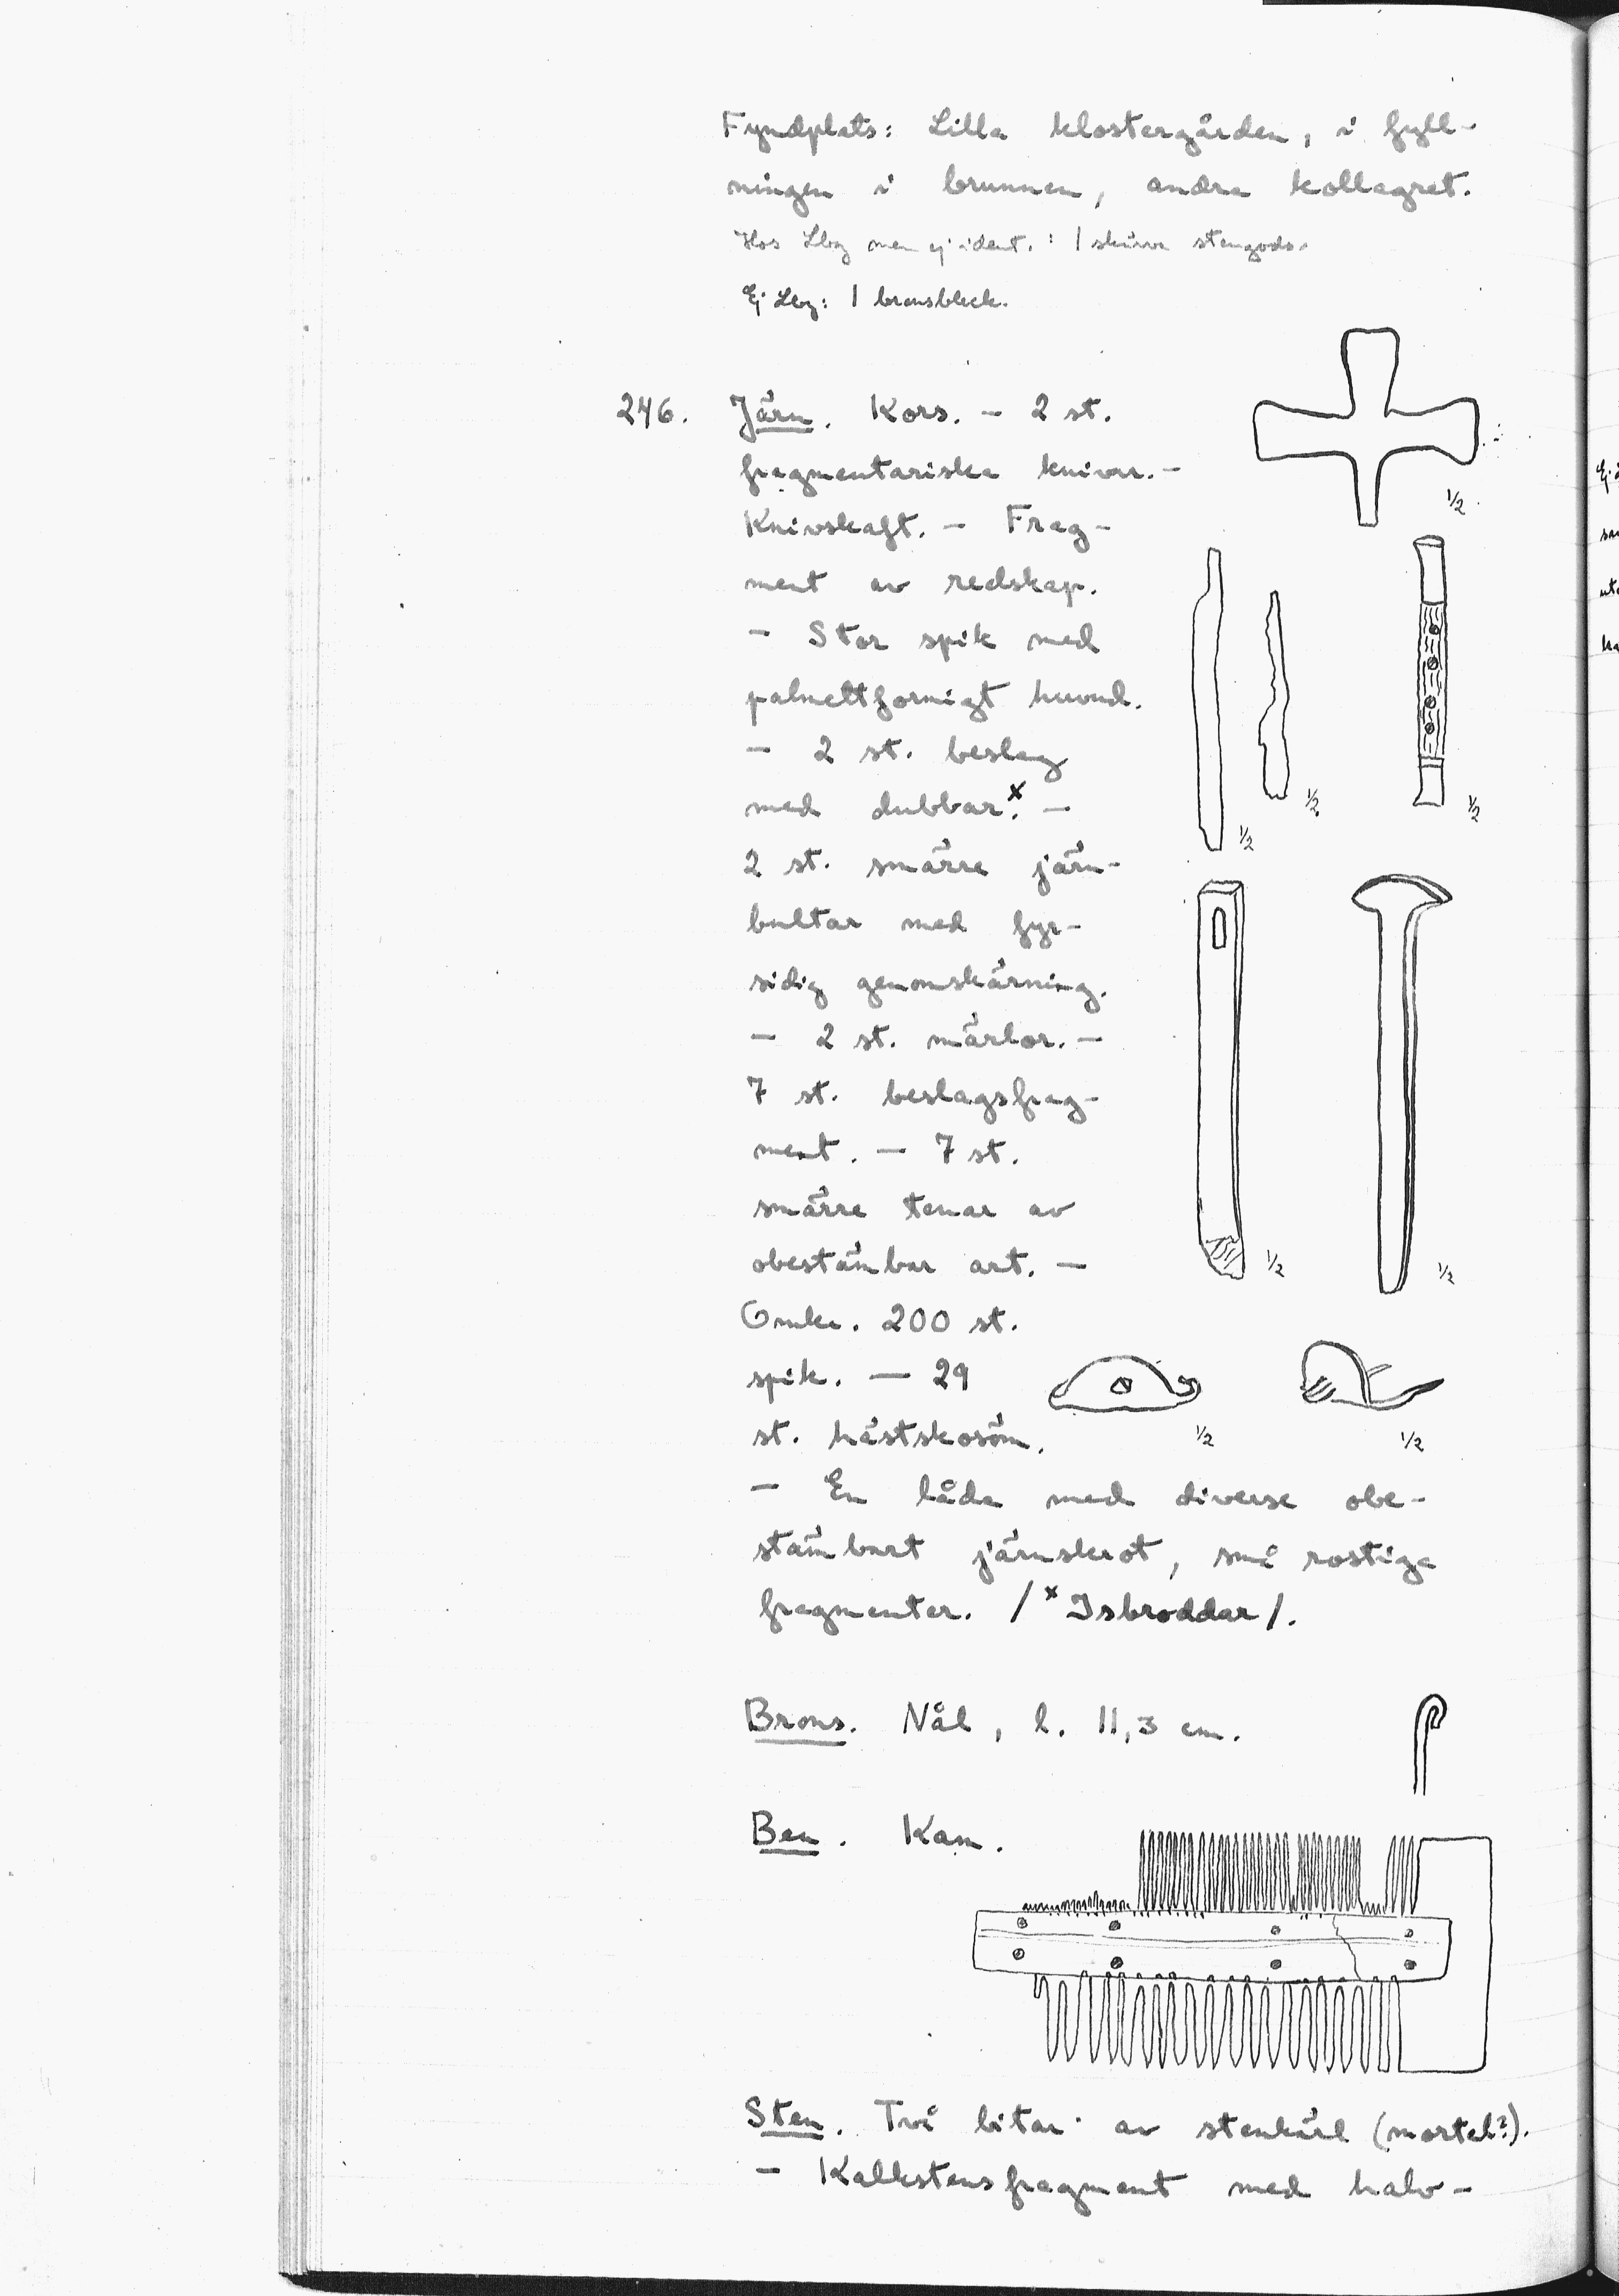 Fyndplats: Lilla klostergården, i fyll-
ningen i brunnen, andra kollagret.
Hos Lbg men ej ident. : 1 skärva stengods.
Ej Lbg: 1 bronsbleck.
246. Järn. Kors. - 2 st.
fragmentariska knivar. -
Knivskaft. - Frag-
ment av redskap.
- Stor spik med
palmettformigt huvud.
- 2 st. beslag
med dubbar.x -
2 st. smärre järn-
bultar med fyr-
sidig genomskärning.
- 2 st. märlor. -
7 st. beslagsfrag-
ment. - 7 st.
smärre tenar av
obestämbar art. -
Omkr. 200 st.
spik. - 29
st. hästskosöm.
- En låda med diverse obe-
stämbart järnskrot, små rostiga
fragmenter. /x Isbroddar/.
1/2
1/2
1/2
1/2
1/2
1/2
1/2
1/2
Brons. Nål, l. 11,3 cm.
Ben. Kam.
Sten. Två bitar av stenkärl (mortel?).
- Kalkstensfragment med halv-